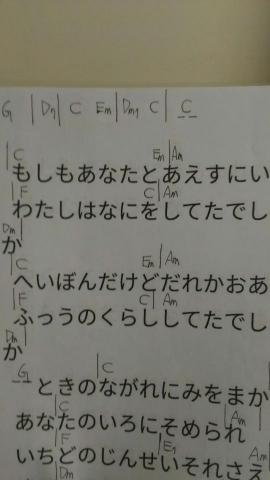 G | Dm | C Em | Dm7 C | C
C Em Am
もしもあなたとあえずにい
F C Am
わたしはなにをしてたでし
Dm
か
C Em Am
へいぼんだけどだれかおあ
F C Am
ふっうのくらししてたでし
Dm
か
G C
ときのながれにみをまか
C Am
あなたのいろにそめられ
F E7 Am
いちどのじんせいそれさえ
Dm